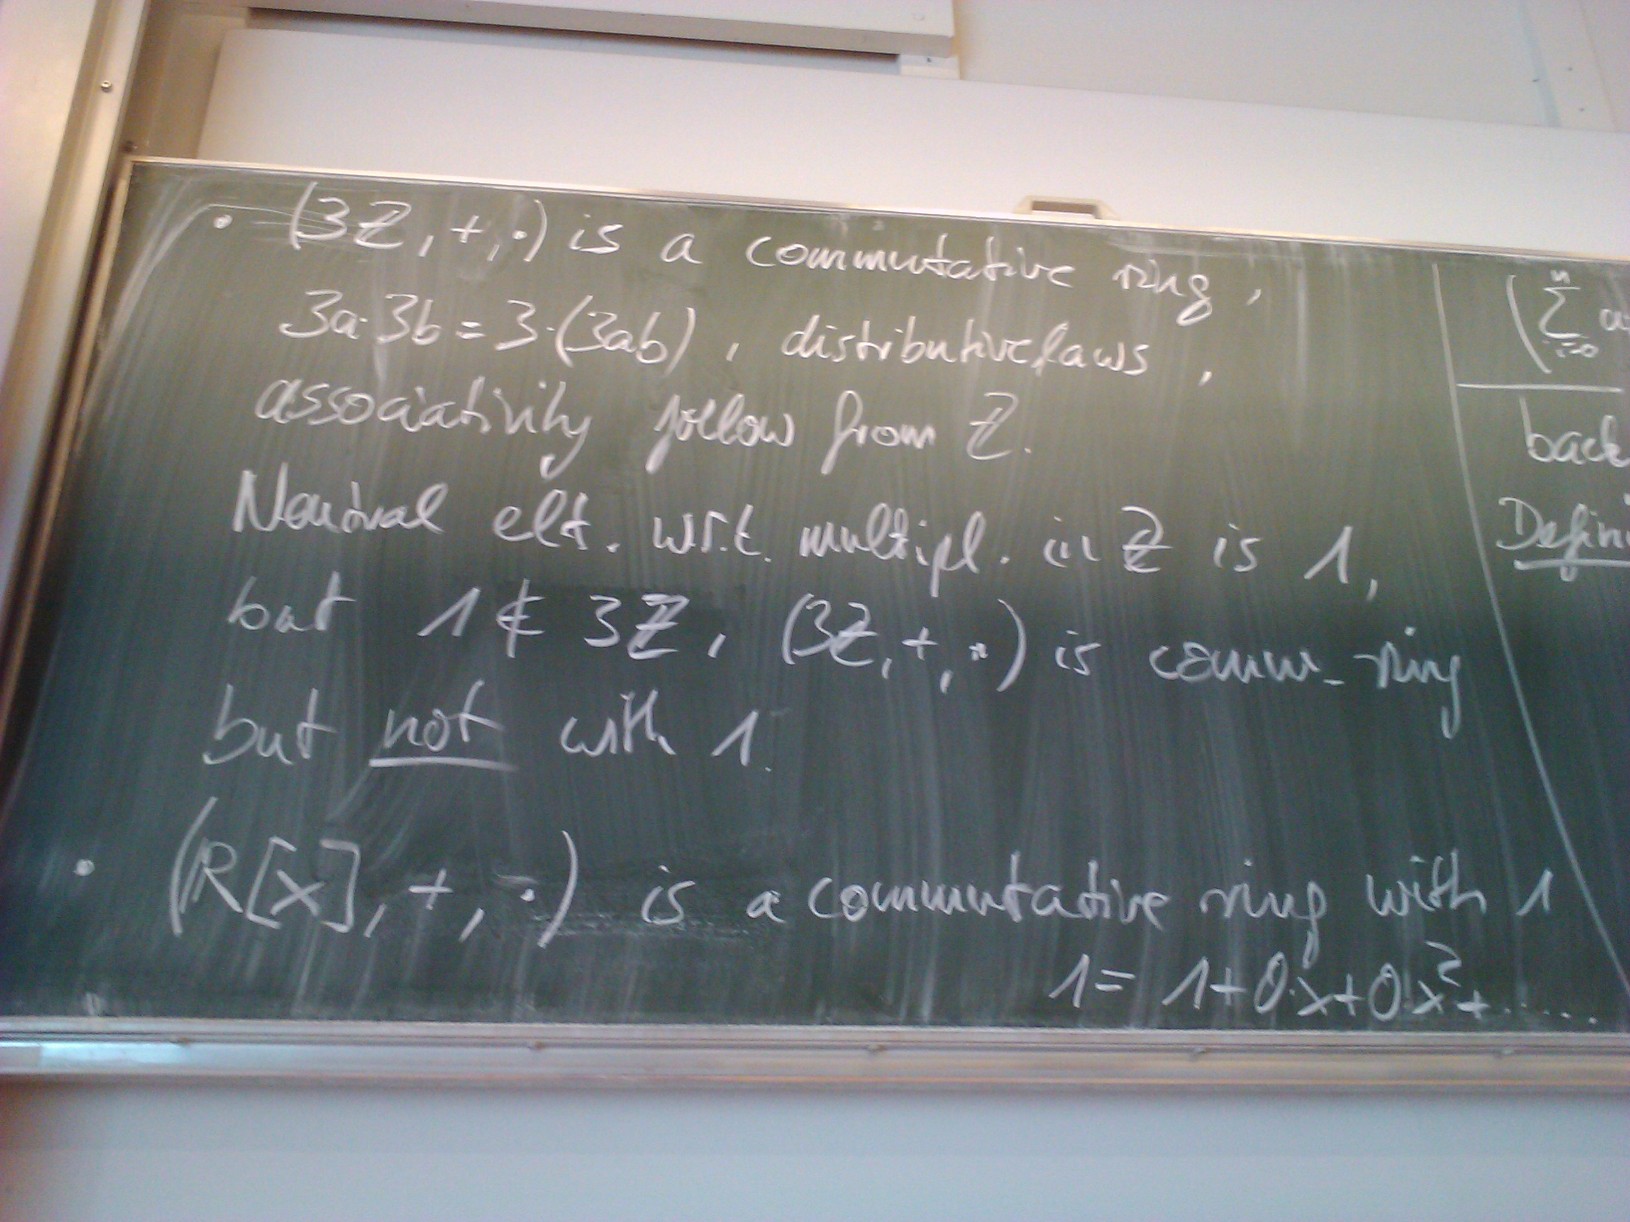 • (3ℤ, +, ·) is a commutative ring,
3a·3b = 3·(3ab), distributive laws,
associativity follow from ℤ.
Neutral elt. w.r.t. multipl. in ℤ is 1,
but 1 ∉ 3ℤ, (3ℤ, +, ·) is comm. ring
but not with 1.
• (R[x], +, ·) is a commutative ring with 1
1 = 1+0·x+0·x²+.....
(∑ⁿᵢ₌₀ a
back
Defini